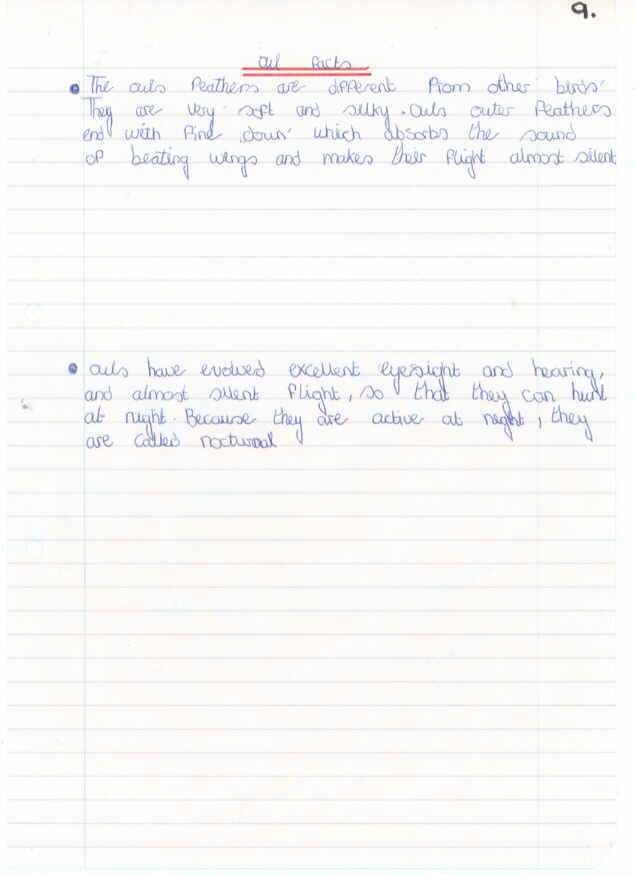 9.
Owl Facts
• The owls feathers are different from other birds.
They are very soft and silky. Owls outer feathers
end with fine 'down' which absorbs the sound
of beating wings and makes their flight almost silent
• Owls have evolved excellent eyesight and hearing,
and almost silent flight, so that they can hunt
at night. Because they are active at night, they
are called nocturnal